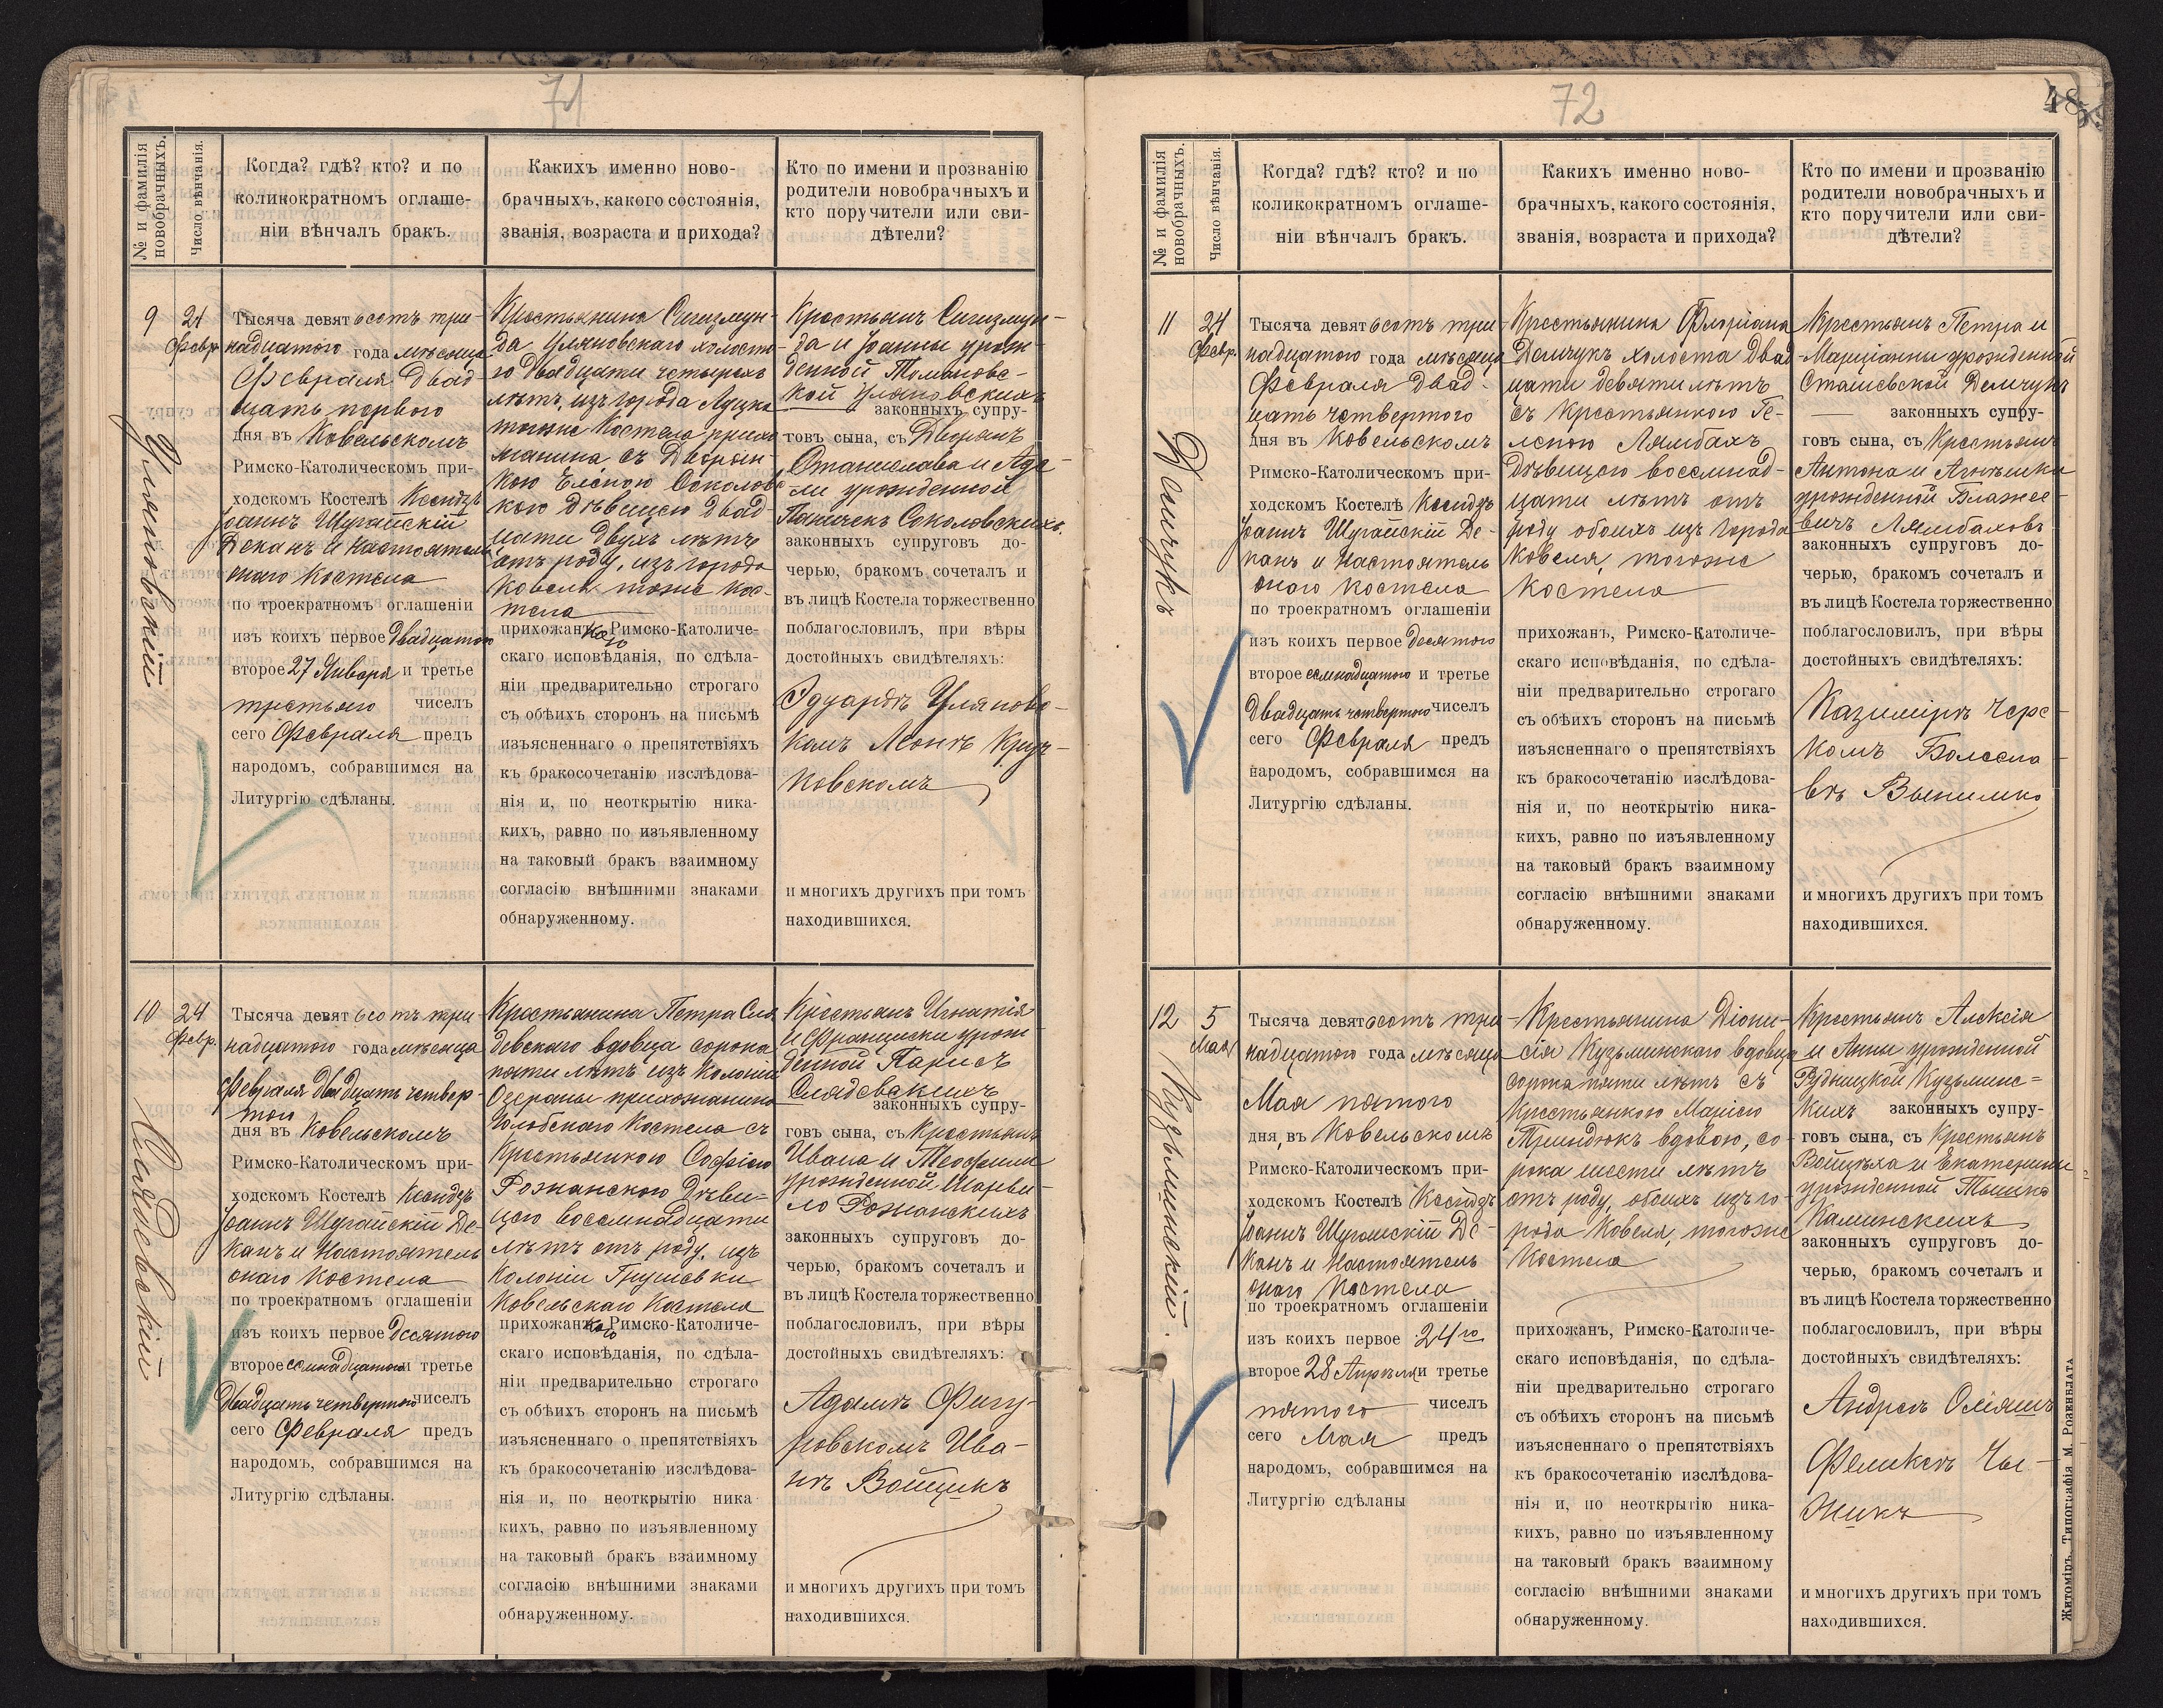 71
№ и фамилія новобрачныхъ.
Число вѣнчанія.
Когда? гдѣ? кто? и по
коликократномъ оглаше-
ніи вѣнчалъ бракъ.
Какихъ именно ново-
брачныхъ, какого состоянія,
званія, возраста и прихода?
Кто по имени и прозванію
родители новобрачныхъ и
кто поручители или сви-
дѣтели?
9
Уляновскій
21
Февр.
Тысяча девятьсотъ три-
надцатого года мѣсяца
Февраля Двад-
цать перваго
дня въ Ковельскомъ
Римско-Католическомъ при-
ходскомъ Костелѣ Ксендзъ
Іоаннъ Щугайскій
Деканъ и Настоятель
онаго Костела
по троекратномъ оглашеніи
изъ коихъ первое Двадцатого
второе 27 Января и третье
третьяго чиселъ
сего Февраля предъ
народомъ, собравшимся на
Литургію сдѣланы.
Крестьянина Сигизмун-
да Уляновскаго холосто-
го Двадцати четырехъ
лѣтъ, изъ города Луцка
тогоже Костела прихо
жанина съ Дворян-
кою Еленою Соколовс
кою Дѣвицею двад-
цати двухъ лѣтъ
отъ роду, изъ города
Ковеля тоже Кос-
тела
прихожанкою Римско-Католиче-
скаго исповѣданія, по сдѣла-
ніи предварительно строгаго
съ обѣихъ сторонъ на письмѣ
изъясненнаго о препятствіяхъ
къ бракосочетанію изслѣдова-
нія и, по неоткрытію ника-
кихъ, равно по изъявленному
на таковый бракъ взаимному
согласію внѣшними знаками
обнаруженному.
Крестьянъ Сигизмун-
да и Іоанны урож-
денной Томановс-
кой Уляновскихъ
законныхъ супру-
говъ сына, съ Дворянъ
Станислава и Аде-
ли урожденной
Паничекъ Соколовскихъ
законныхъ супруговъ до-
черью, бракомъ сочеталъ и
въ лицѣ Костела торжественно
поблагословилъ, при вѣры
достойныхъ свидѣтеляхъ:
Эдуардъ Уляновс-
комъ Леонъ Круч-
ковскомъ
и многихъ другихъ при томъ
находившихся.
10
Сиядевскій
24
Февр.
Тысяча девятьсотъ три
надцатого года мѣсяца
Февраля двадцать четвер-
того
дня въ Ковельскомъ
Римско-Католическомъ при-
ходскомъ Костелѣ Ксендзъ
Іоаннъ Щугайскій Де-
канъ и Настоятель
онаго Костела
по троекратномъ оглашеніи
изъ коихъ первое Десятого
второе семнадцатого и третье
Двадцать четвертого чиселъ
сего Февраля предъ
народомъ, собравшимся на
Литургію сдѣланы.
Крестьянина Петра Сия
девскаго вдовца сорока
пяти лѣтъ изъ Колоніи
Озераны прихожанина
Голобскаго Костела съ
Крестьянкою Софіею
Рожанскою Дѣви-
цею восемнадцати
лѣтъ отъ роду, изъ
Колоніи Грушевки
Ковельскаго Костела
прихожанкою Римско-Католиче-
скаго исповѣданія, по сдѣла-
ніи предварительно строгаго
съ обѣихъ сторонъ на письмѣ
изъясненнаго о препятствіяхъ
къ бракосочетанію изслѣдова-
нія и, по неоткрытію ника-
кихъ, равно по изъявленному
на таковый бракъ взаимному
согласію внѣшними знаками
обнаруженному.
Крестьянъ Игнатія
и Францишки урож-
денной Парисъ
Сиядевскихъ
законныхъ супру-
говъ сына, съ Крестьянъ
Ивана и Теофили
урожденной
Рожанскихъ
законныхъ супруговъ до-
черью, бракомъ сочеталъ и
въ лицѣ Костела торжественно
поблагословилъ, при вѣры
достойныхъ свидѣтеляхъ:
Адамъ Фигу-
ровскомъ Ива-
нъ Войцикъ
и многихъ другихъ при томъ
находившихся.
72
48
№ и фамилія новобрачныхъ.
Число вѣнчанія.
Когда? гдѣ? кто? и по
коликократномъ оглаше-
ніи вѣнчалъ бракъ.
Какихъ именно ново-
брачныхъ, какого состоянія,
званія, возраста и прихода?
Кто по имени и прозванію
родители новобрачныхъ и
кто поручители или сви-
дѣтели?
11
Демчукъ
24
Февр.
Тысяча девятьсотъ три
надцатого года мѣсяца
Февраля Двад-
цать четвертого
дня въ Ковельскомъ
Римско-Католическомъ при-
ходскомъ Костелѣ Ксендзъ
Іоаннъ Щугайскій Де-
канъ и Настоятель
онаго Костела
по троекратномъ оглашеніи
изъ коихъ первое Десятого
второе семнадцатого и третье
Двадцать четвертого чиселъ
сего Февраля предъ
народомъ, собравшимся на
Литургію сдѣланы.
Крестьянина Флоріана
Демчукъ холоста Двад
цати девяти лѣтъ
съ Крестьянкою Ге-
леною Лямбахъ
Дѣвицею восемнад-
цати лѣтъ отъ
роду обоихъ изъ города
Ковеля, тогоже
Костела
прихожанъ, Римско-Католиче-
скаго исповѣданія, по сдѣла-
ніи предварительно строгаго
съ обѣихъ сторонъ на письмѣ
изъясненнаго о препятствіяхъ
къ бракосочетанію изслѣдова-
нія и, по неоткрытію ника-
кихъ, равно по изъявленному
на таковый бракъ взаимному
согласію внѣшними знаками
обнаруженному.
Крестьянъ Петра и
Марціанны урожденной
Сташевской Демчукъ
законныхъ супру-
говъ сына, съ Крестьянъ
Антона и Агнѣшки
урожденной Блаже-
вичъ Лямбаховъ
законныхъ супруговъ до-
черью, бракомъ сочеталъ и
въ лицѣ Костела торжественно
поблагословилъ, при вѣры
достойныхъ свидѣтеляхъ:
Казиміръ Чере-
комъ Болесла-
въ
и многихъ другихъ при томъ
находившихся.
12
Кузьминскій.
5
Мая
Тысяча девятьсотъ три
надцатого года мѣсяца
Мая пятого
дня, въ Ковельскомъ
Римско-Католическомъ при-
ходскомъ Костелѣ Ксендзъ
Іоаннъ Щугайскій Де-
канъ и Настоятель
онаго Костела
по троекратномъ оглашеніи
изъ коихъ первое 24го
второе 28 Апрѣля и третье
пятого чиселъ
сего Мая предъ
народомъ, собравшимся на
Литургію сдѣланы
Крестьянина Діони-
сія Кузьминскаго вдовца
сорока пяти лѣтъ съ
Крестьянкою Маріею
Гриндюкъ вдовою, со-
рока шести лѣтъ
отъ роду, обоихъ изъ го-
рода Ковеля, тогоже
Костела
прихожанъ, Римско-Католиче-
скаго исповѣданія, по сдѣла-
ніи предварительно строгаго
съ обѣихъ сторонъ на письмѣ
изъясненнаго о препятствіяхъ
къ бракосочетанію изслѣдова-
нія и, по неоткрытію ника-
кихъ, равно по изъявленному
на таковый бракъ взаимному
согласію внѣшними знаками
обнаруженному.
Крестьянъ Алексія
и Анны урожденной
Рудницкой Кузьминс=
кихъ законныхъ супру-
говъ сына, съ Крестьянъ
Войцѣха и Екатерины
урожденной
Каминскихъ
законныхъ супруговъ до-
черью, бракомъ сочеталъ и
въ лицѣ Костела торжественно
поблагословилъ, при вѣры
достойныхъ свидѣтеляхъ:
Андрей
Феликсъ Чы-
жикъ
и многихъ другихъ при томъ
находившихся.
Житоміръ, Типографія М. Розенблата